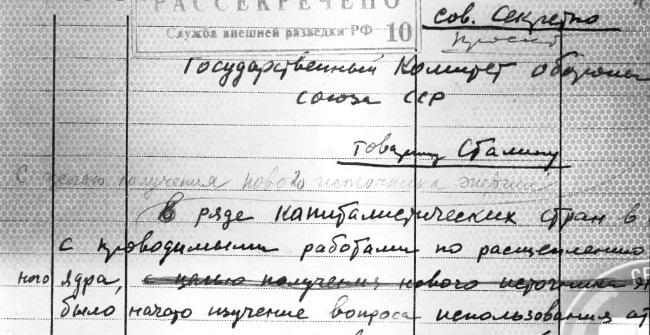 РАССЕКРЕЧЕНО
Служба внешней разведки РФ 10
Сов. Секретно
Проект
Государственный Комитет Обороны
Союза ССР
Товарищу Сталину
С целью получения нового источника энергии
В ряде капиталистических стран в
с проводимыми работами по расщеплению
ного ядра, с целью получения нового источника э
было начато изучение вопроса использования ат